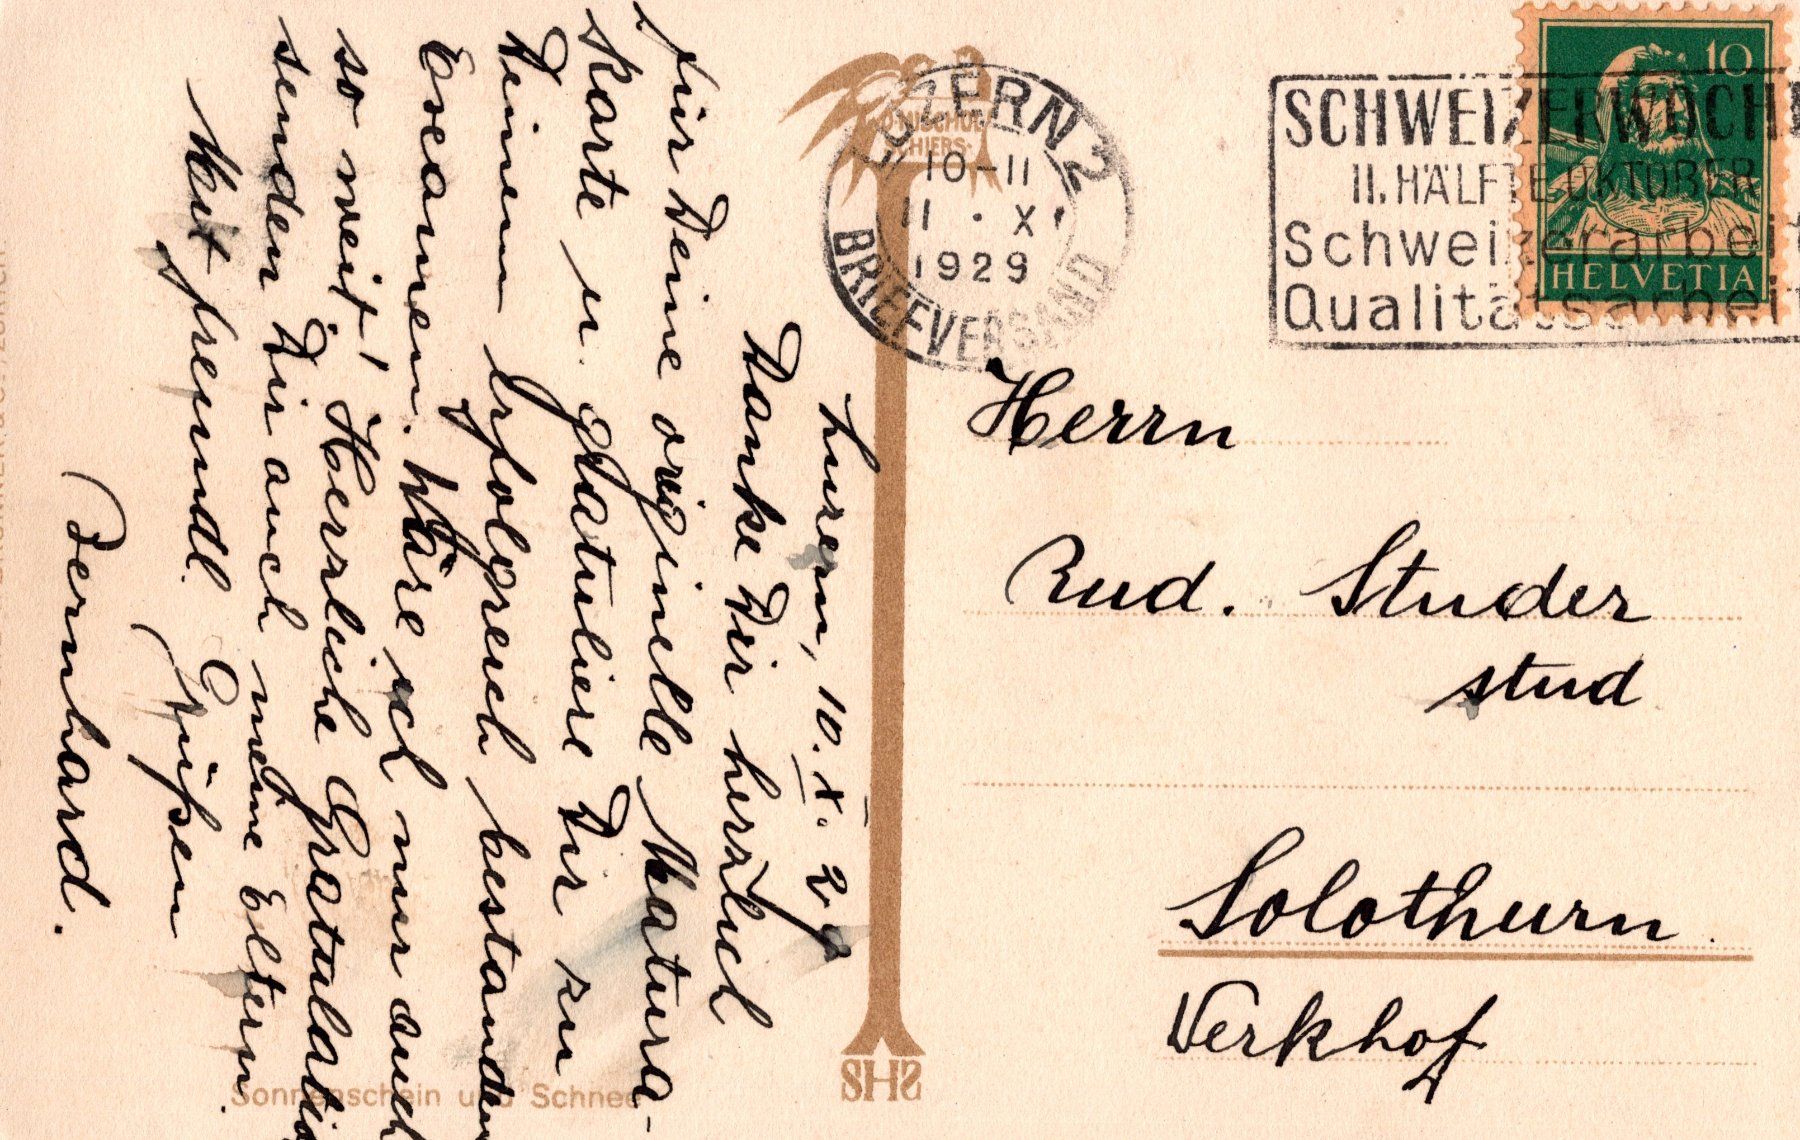 Luzern, 10. X. 29
Danke Dir herzlich
für Deine originelle Matura-
karte u. gratuliere Dir zu
Deinem erfolgreich bestanden
Examen. Wäre ich nur auch
so weit! Herzliche Gratulatio
senden Dir auch meine Eltern.
Mit freundl. Grüßen
Bernhard.
Sonnenschein und Schnee
LUZERN 2
10-11
11 . X.
1929
BRIEFVERSAND
SCHIERS
SHS
SCHWEIZERWOCH
II. HÄLFTE OKTOBER
Schweizerarbeit
Qualitätsarbeit
10
HELVETIA
Herrn
Rud. Studer
stud
Solothurn
Werkhof